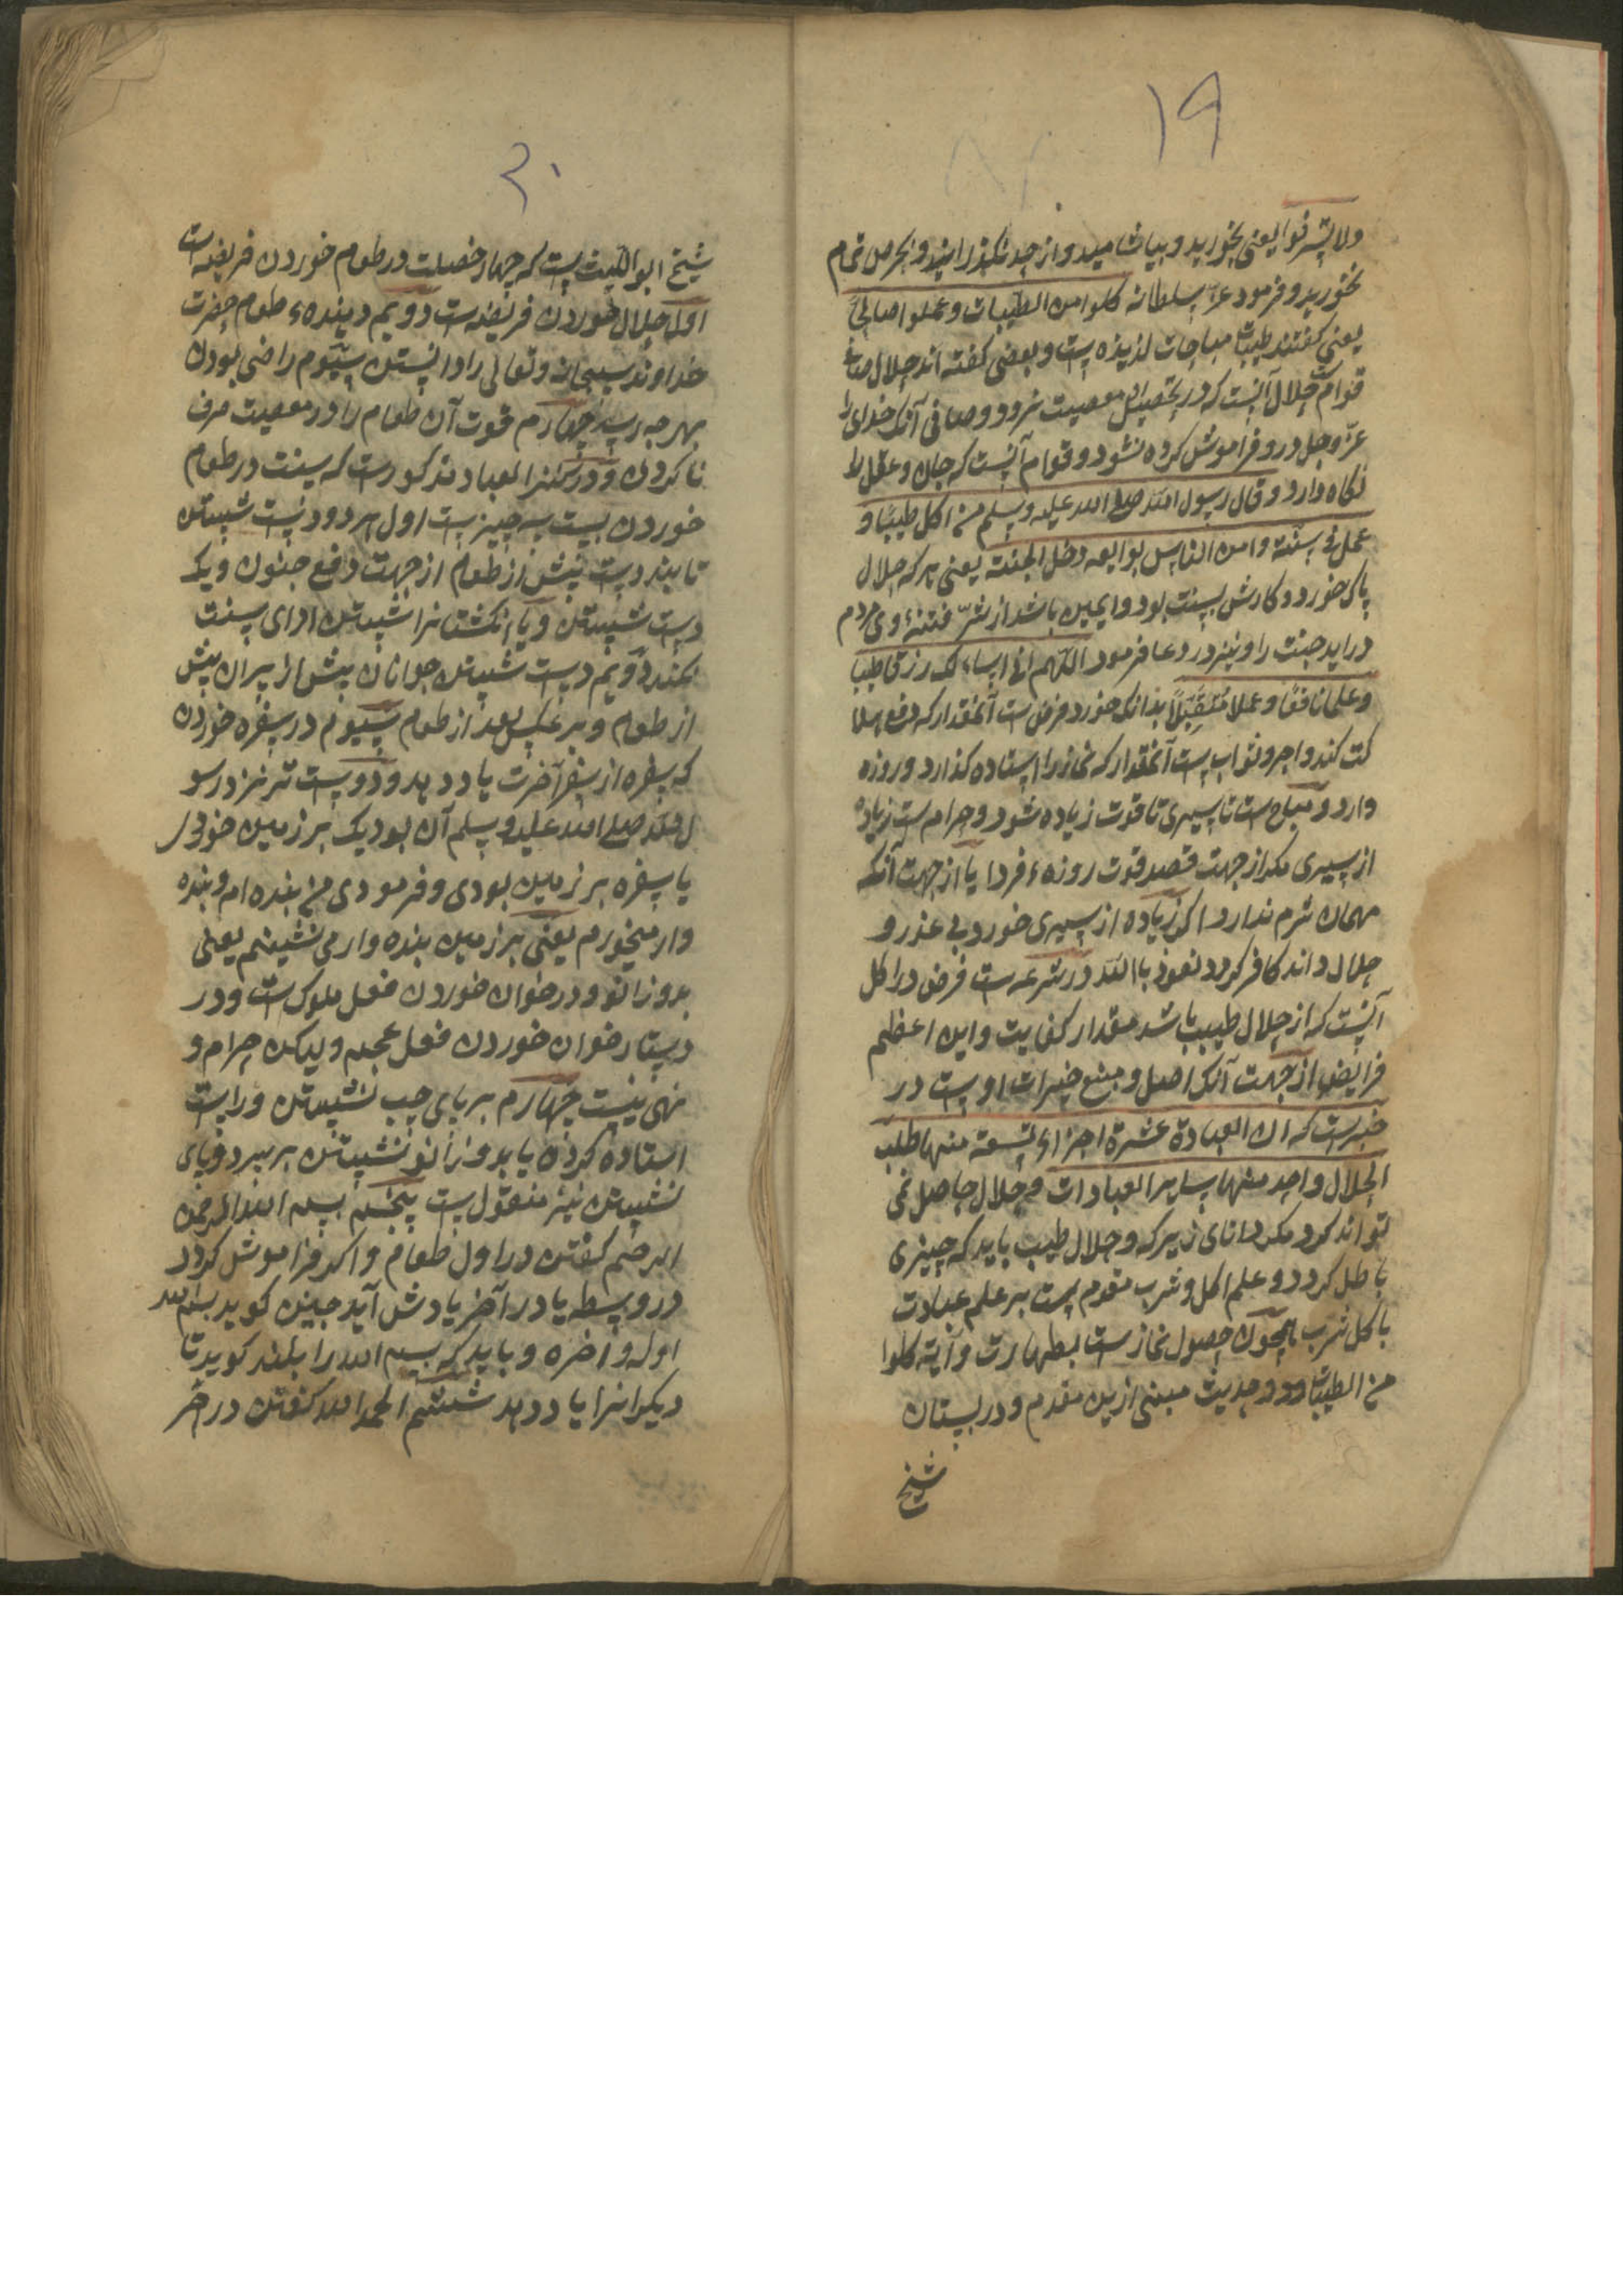 ۱۹
ولا تسرفوا یعنی بخورید و بیاشامید و از حد نگذرانید و بحرص تمام
نخورید و فرمود عز سلطانه کلوا من الطیبات و عملوا صالحا
یعنی گفتند طیبات مباحات لذیذه است و بعضی گفته اند حلال صاف
قوام حلال آنست که در تحصیل معصیت نرود و صافی آنکه خدای را
عز وجل درو فراموش کرده نشود و قوام آنست که جان و عقل را
نگاه دارد و قال رسول الله صلی الله علیه وسلم من اکل طیبا و
عمل فی سنة و امن الناس بوایقه دخل الجنة یعنی هر که حلال
پاک خورد و کارش بسنت بود و ایمن باشد از شر فتنهٔ وی مردم
دراید جنت را و نیز در دعا فرمود اللهم انی اسالک رزقا طیبا
و علما نافعا و عملا متقبلا بدانکه خورد فرض ست آنمقدار که دفع هلا
کت کند و اجر و ثواب ست آنمقدار که نماز را استاده گذارد و روزه
دارد و مباح ست تا سیری تا قوت زیاده شود و حرام ست زیاد
از سیری مگر از جهت قصد قوت روزهٔ فردا یا از جهت آنکه
مهمان شرم ندارد اگر زیاده از سیری خورد بی عذر و
حلال داند کافر گردد نعوذ بالله در شرعه ست فرض در اکل
آنست که از حلال طیب باشد مقدار کفایت و این اعظم
فرایض از جهت آنکه اصل و منبع خیرات اوست در
خبرست که ان العبادة عشرة اجزاء تسعة منها طلب
الحلال و احد منها سایر العبادات و حلال حاصل نمی
تواند کرد مگر دانای زیرک و حلال طیب باید که چیزی
باطل گردد و علم اکل و شرب مقدم ست بر علم عبادت
باکل شرب همچون حصول نماز ست بطهارت و آیه کلوا
من الطیبات و حدیث مبنی ازین مقدم و در بستان
شیخ
۲۰
شیخ ابو اللیث ست که چهار خصلت در طعام خوردن فریضه است
اول حلال خوردن فریضه ست دویم دهندهٔ طعام حضرت
خداوند سبحانه و تعالی را دانستن سیوم راضی بودن
بهر چه رسد چهارم قوت آن طعام را در معصیت صرف
ناکردن و در کنز العباد مذکور ست که سنت در طعام
خوردن بیست سه چیز ست اول هر دو دست شستن
تا بند دست پیش از طعام از جهت دفع جنون و یک
دست شستن و یا انگشتانرا شستن ادای سنت
نکند دویم دست شستن جوانان پیش از پیران پیش
از طعام و برعکس بعد از طعام سیوم در سفره خوردن
که سفره از سفر آخرت یاد دهد و دوست تر نزد رسو
ل الله صلی الله علیه وسلم آن بود یک بر زمین خوری
یا سفره بر زمین بودی و فرمودی من بنده ام و بنده
وار میخورم یعنی بر زمین بنده وار می نشینم یعنی
بدو زانو و در خوان خوردن فعل ملوک ست و در
دستار خوان خوردن فعل عجم ولیکن حرام و
نهی نیست چهارم بر پای چپ نشستن و راست
استاده کردن یا بدو زانو نشستن بر سر دو پای
نشستن نیز منقول ست پنجم بسم الله الرحمن
الرحیم گفتن در اول طعام و اگر فراموش گردد
در وسط یا در آخر یادش آید چنین گوید بسم الله
اوله و آخره و باید که بسم الله را بلند گوید تا
دیگرانرا یاد دهد ششم الحمد لله گفتن در آخر